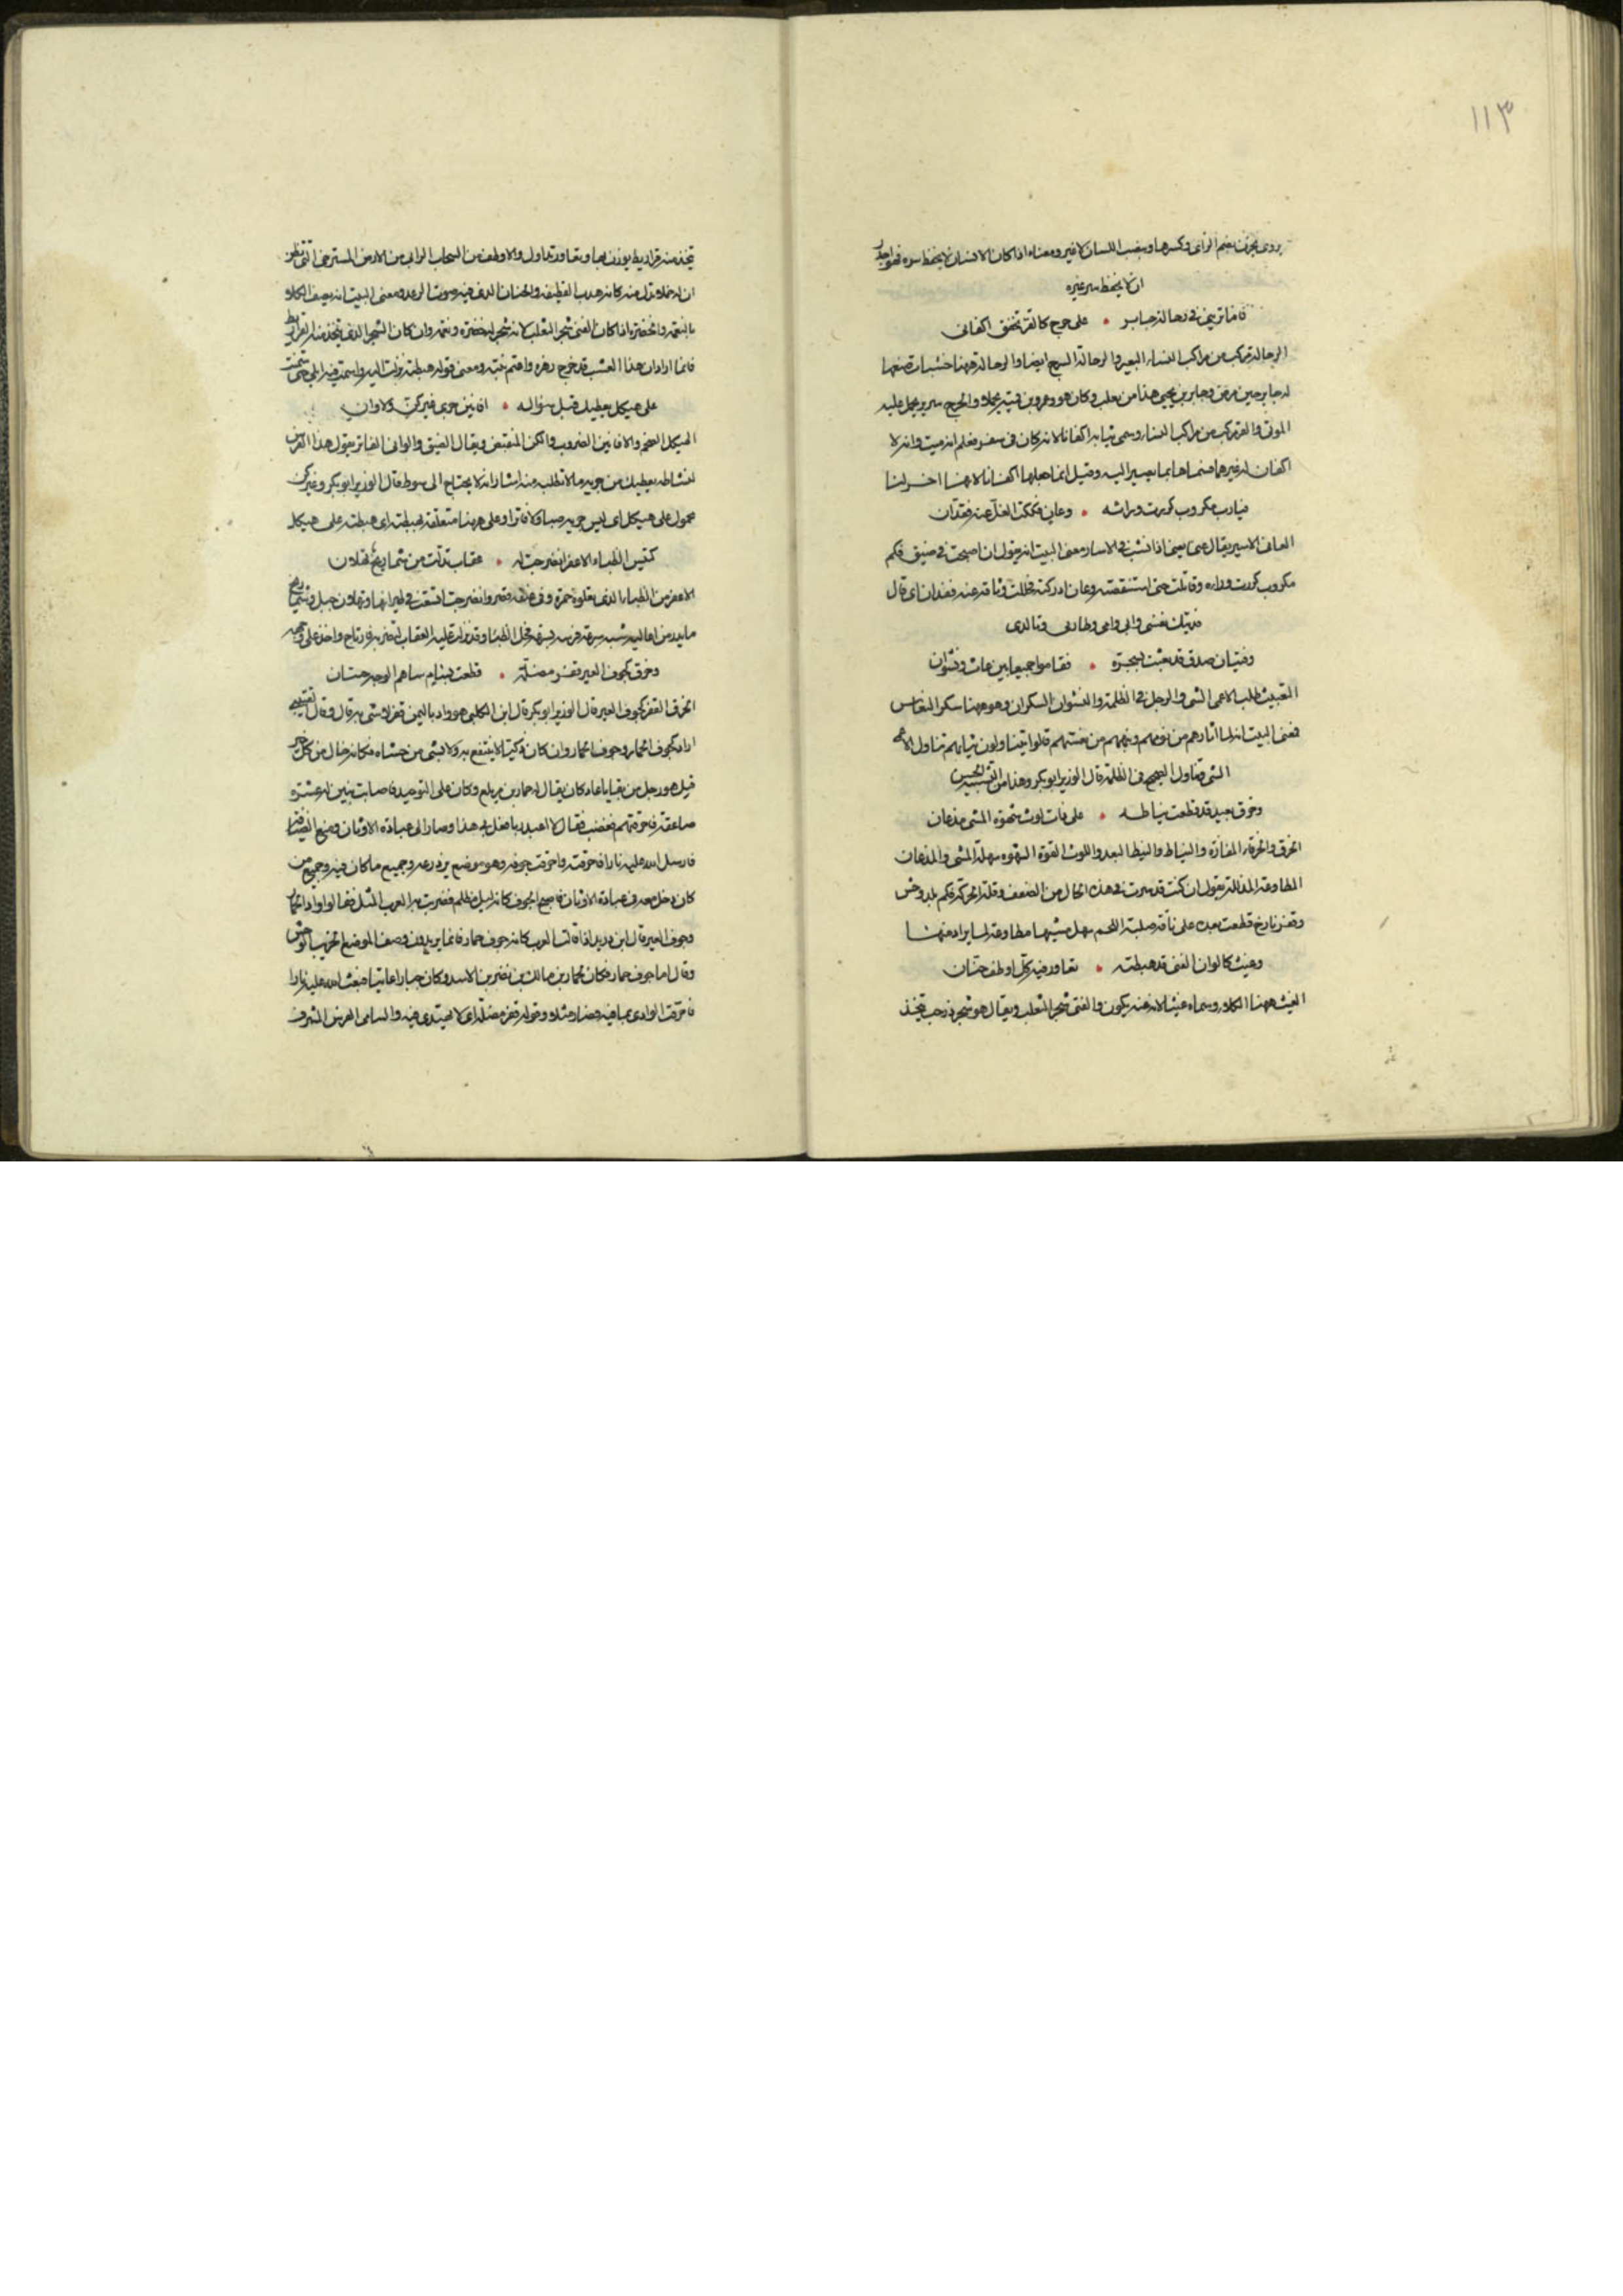 ١١٣
يروى يخزن بضم الزاى وكسرها وينصب اللسان لا غير ومعناه اذا كان الانسان لا يحفظ سره فهو اجدر
ان لا يحفظ سر غيره
فاما ترينى فى رحالة جابر • على حرج كالقر تخفق اكفانى
الرحالة مركب من مراكب النساء البعير والرحالة السرج ايضا والرحالة ههنا خشبات صنعها
له جابر حين مرض وجابر بن يحيى هذا من تغلب وكان هو وعمرو بن قميئة والحرج سرير يحمل عليه
الموتى والقر مركب من مراكب النساء وسمى ثيابه اكفانا لانه كان فى سفر فعلم انه ميت وانه لا
اكفان له غيرها فسماها بما يصير اليه وقيل انما جعلها اكفانا لانها اخر لبسا
فيارب مكروب كررت وراءه • وعان فككت الغل عنه ففدان
العانى الاسير يقال عنى يعنى اذا نشب فى الاسار ومعنى البيت انه يقول ان اصبحت فى ضيق فكم
مكروب كررت وراءه وقاتلت حتى استنقذته وعان ادركته فحللت وثاقه عنه ففدان اى قال
فديتك نفسى وابى وامى وطارفى وتالدى
وفتيان صدق قد بعثت بسحرة • فقاموا جميعا بين عاث ونشوان
التعييث طلب الاعمى الشى والرجل فى الظلمة والنشوان السكران وهو ههنا سكر النعاس
فمعنى البيت انه لما اثارهم من نومهم ونبههم من نعستهم قاموا يتناولون ثيابهم تناول الاعمى
الشى وتناول الصحيح فى الظلمة قال الوزير ابو بكر وهذا من التشبيه الحسن
وخرق بعيد قد قطعت نياطه • على ذات لوث سهوة المشى مذعان
الخرق والخرقاء المفازة والنياط والنيط البعد واللوث القوة السهوة سهلة المشى والمذعان
المطاوعة المذللة يقول ان كنت قد صرت فى هذه الحال من الضعف وقلة الحركة فكم بلد وحش
وقفر نازح قطعت بعده على ناقة صلبة اللحم سهل مشيها مطاوعة لما يراد منها
وغيث كالوان الفنى قد هبطته • تعاور فيه كل اوطف حنان
الغيث ههنا الكلاء وسماه غيثا لانه عنه يكون والفنى شجر الثعلب ويقال هو شجر ذو حب يتخذ
يتخذ منه قراريط يوزن بها وتعاور تداول والاوطف من السحاب الدانى من الارض المسترخى التى تنظر
ان له خملا تدلى منه كانه هدب القطيفة والحنان الذى فيه صوت الرعد ومعنى البيت انه يصف الكلاء
بالنعمة والخضرة اذا كان الفنى شجر الثعلب لانه شجر له خضرة ونعمة وان كان الشجر الذى يتخذ منه القراريط
فانما اراد ان هذا العشب قد خرج زهره واعتم نبته ومعنى قوله هبطته نزلت اليه واسمت فيه ابلى حتى سمنت
على هيكل يعطيك قبل سؤاله • افانين جرى غير كز ولا وان
الهيكل الضخم والافانين الضروب والكز المنقبض ويقال الضيق والوانى الفاتر يقول هذا الفرس
لنشاطه يعطيك من جريه ما لا تطلبه منه اشار انه لا يحتاج الى سوط قال الوزير ابو بكر وغير كز
محمول على هيكل اى ليس جريه صعبا ولا فاترا وعلى ههنا متعلقة بهبطته اى هبطته على هيكل
كتيس الظباء الاعفر انضرجت له • عقاب تدلت من شماريخ ثهلان
الاعفر من الظباء الذى تعلوه حمرة وفى عنقه قصر وانضرجت انشقت فى طيرانها وثهلان جبل وشماريخه
ما يدر من اعاليه شبه سرعة فرسه بسرعة فحل الظباء وقد نزلت عليه العقاب
وخرق كجوف العير قفر مضلة • قطعت بسام ساهم الوجه حسان
الخرق القفر كجوف العير قال الوزير ابو بكر قال ابن الكلبى هو واد باليمن قفر لا شى به قال وقال
اراد كجوف الحمار وجوف الحمار وان كان ذكيا لا ينتفع به ولا بشى من حشاه فكانه خال من كل خير
قيل هو رجل من بقايا عاد كان يقال له حمار بن مويلع وكان على التوحيد فاصابت بنين له عشرة
صاعقة فاحرقتهم فغضب فقال لا اعبد ربا فعل بى هذا وصار الى عبادة الاوثان ومنع الضيافة
فارسل الله عليه نارا فاحرقته واحرقت جوفه وهو موضع يزدرعه وجميع ما كان فيه وجميع من
كان دخل معه فى عبادة الاوثان فاصبح الجوف كانه ليل مظلم فضربت به العرب المثل فقالوا واد الحمار
وجوف العير قال ابن دريد اذا قالت العرب كانه جوف حمار فانما يريدون وصف الموضع الخرب الموحش
وقال اما جوف حمار فكان لحمار بن مالك بن نصر بن الاسد وكان جبارا عاتيا فبعث الله عليه نارا
فاحرقت الوادى بما فيه فصار مثلا وقوله قفر مضلة اى لا يهتدى فيه والسامى الفرس المشرف